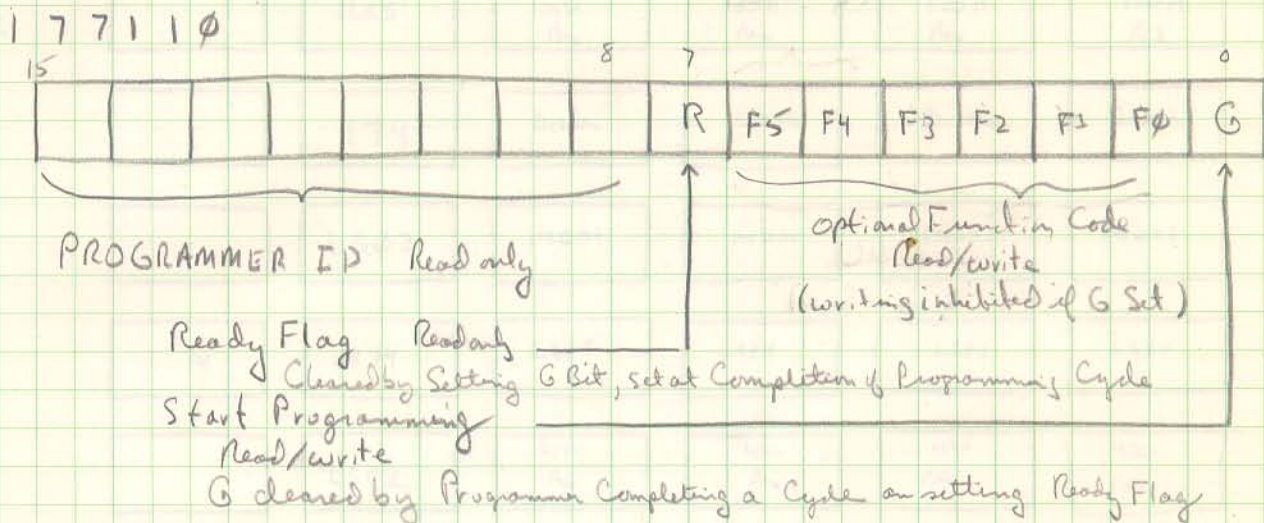 1 7 7 1 1 0
15 8 7 0
R F5 F4 F3 F2 F1 F0 G
optional Function Code
PROGRAMMER ID Read only
Read/write
(writing inhibited if G Set)
Ready Flag Read only
Cleared by Setting G Bit, set at Completion of Programming Cycle
Start Programming
Read/write
G cleared by Programmer Completing a Cycle on setting Ready Flag